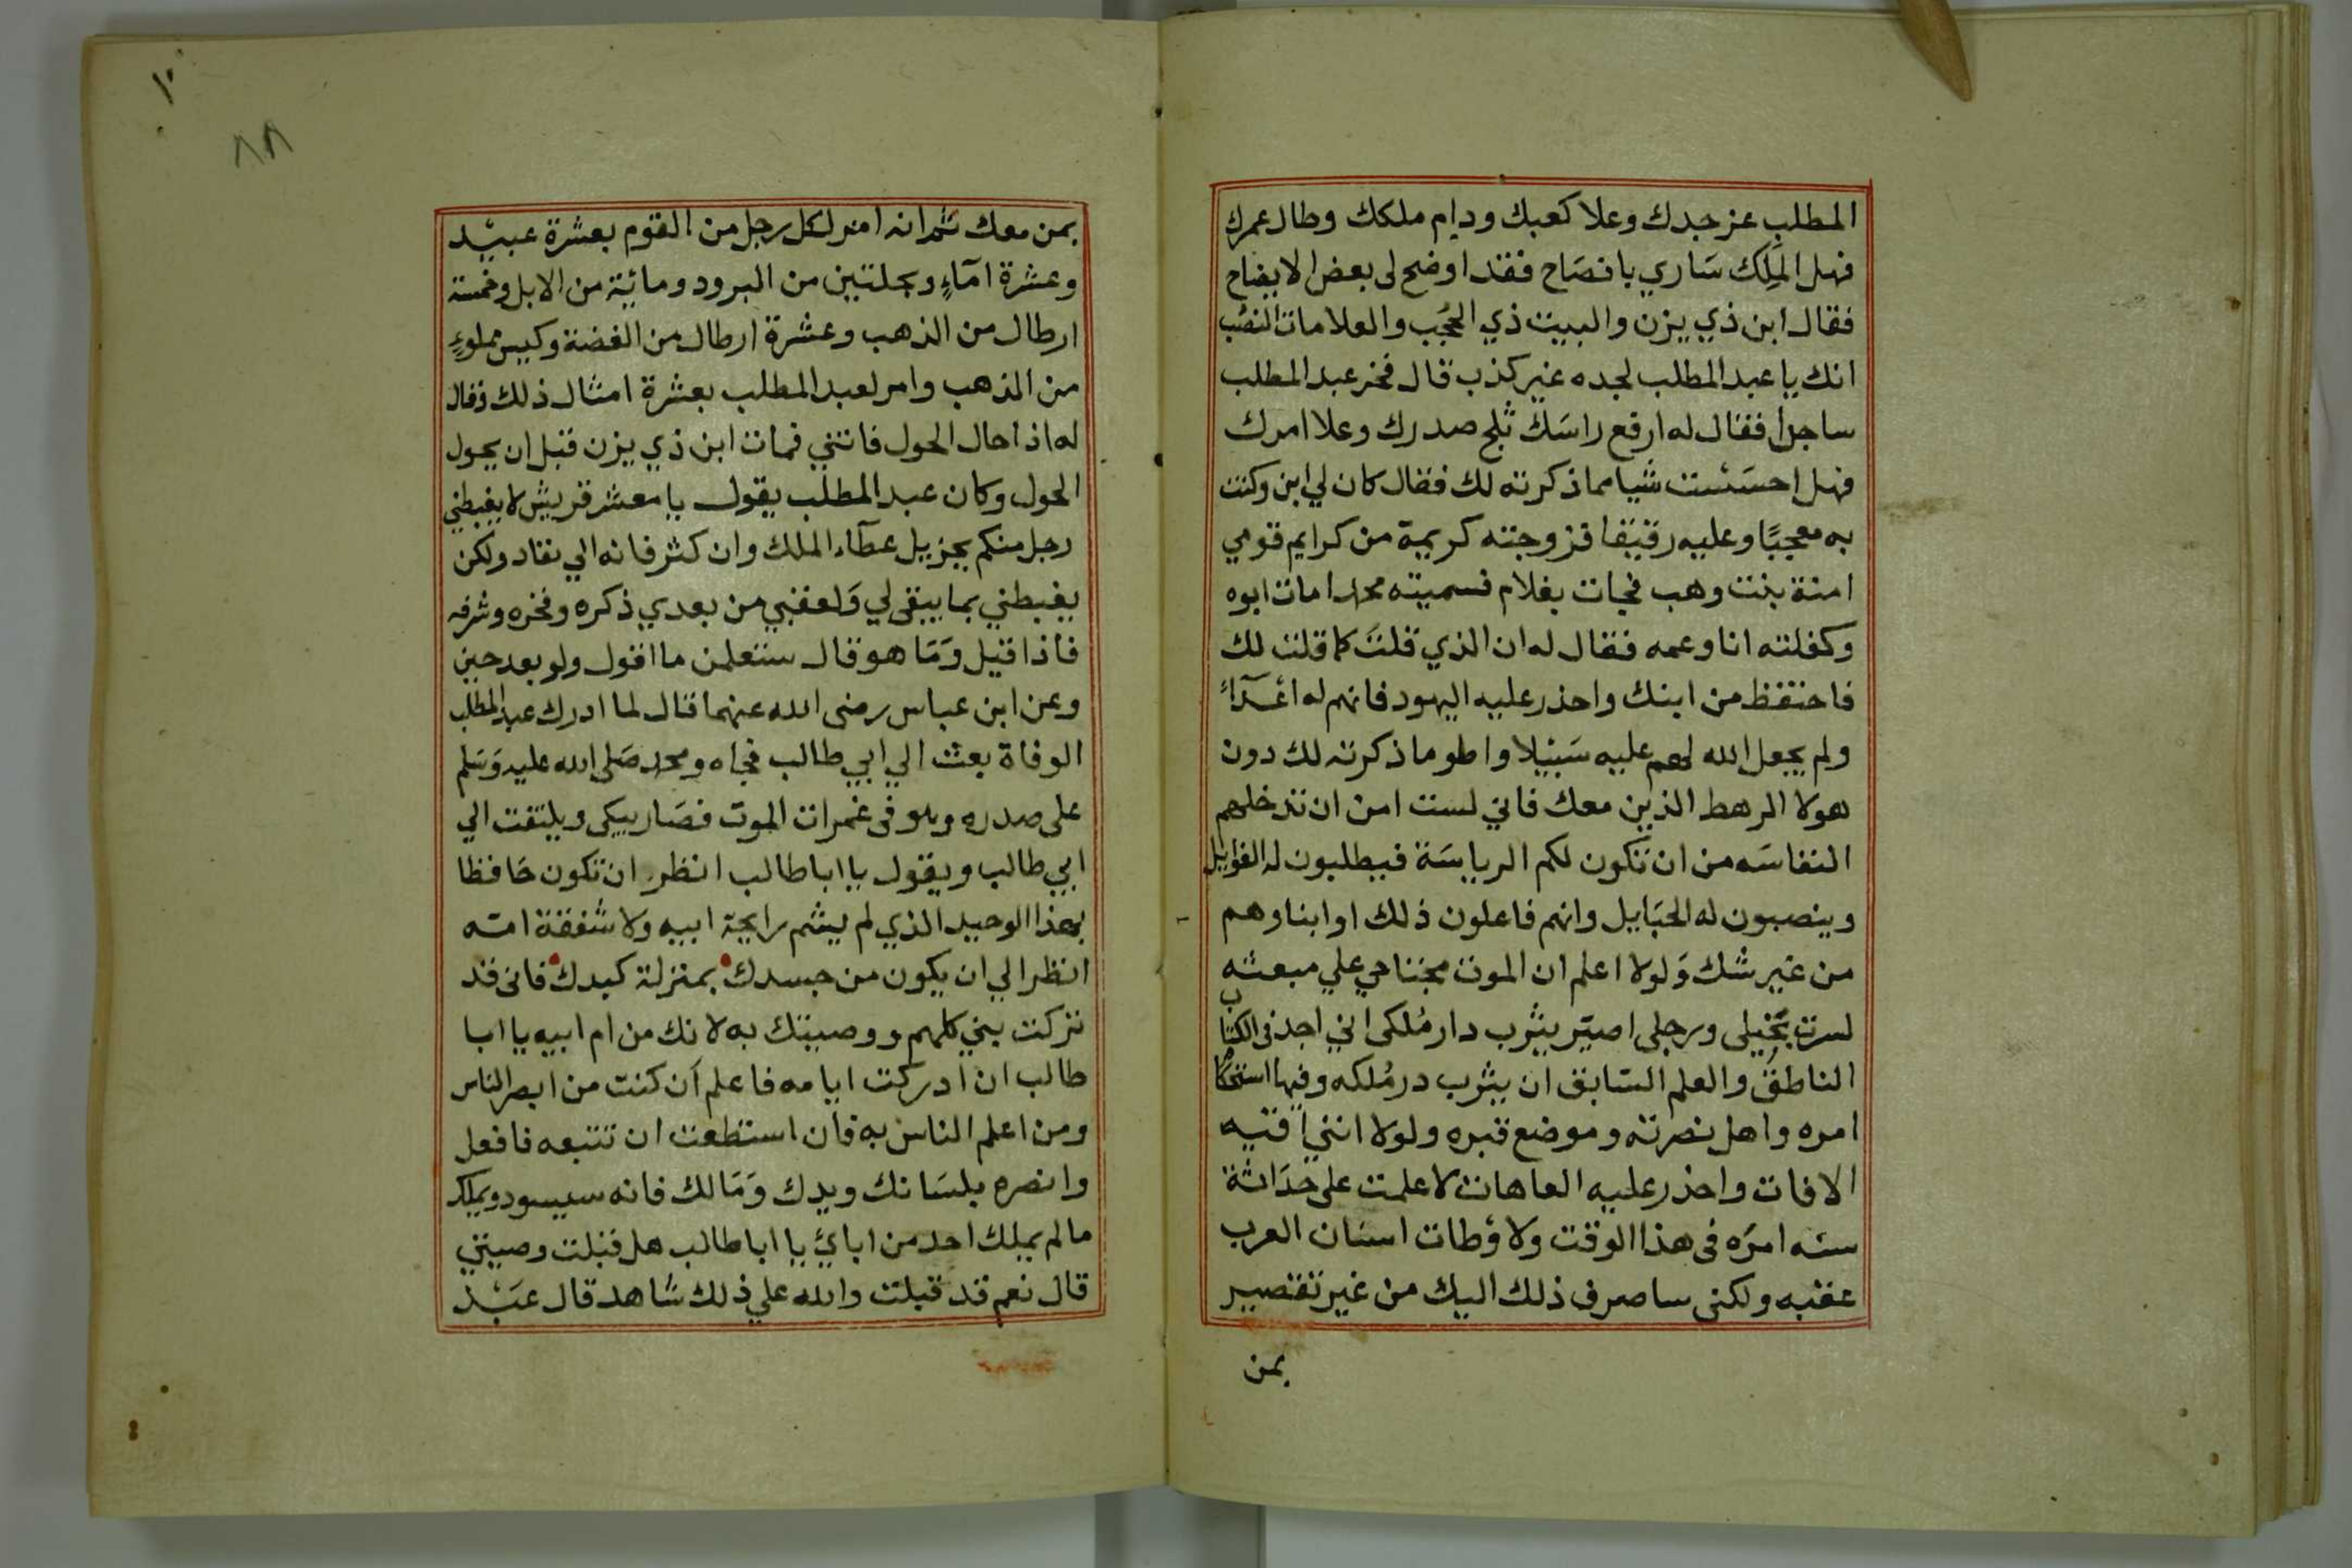 المطلب عز جدك وعلا كعبك ودام ملكك وطال عمرك
فهل الملِك سَاري بافصَاح فقد اوضح لى بعض الايضاح
فقال ابن ذي يزن والبيت ذي الحجُب والعلامات النصُب
انك يا عبد المطلب لجده غير كذب قال فخر عبد المطلب
ساجدا فقال له ارفع راسَك ثلج صدرك وعلا امرك
فهل احسَسْت شيا مما ذكرته لك فقال كان لي ابن وكنت
به معجبًا وعليه رقيقا فزوجته كريمة من كرايم قومي
امنة بنت وهب فجات بغلام فسميته محمدا مات ابوه
وكفلته انا وعمه فقال له ان الذي قلتَ كما قلت لك
فاحتفظ من ابنك واحذر عليه اليهود فانهم له اعْدَآءٌ
ولم يجعل الله لهم عليه سَبيلا واطو ما ذكرته لك دون
هولا الرهط الذين معك فاني لست امن ان تدخلهم
النفاسَه من ان تكون لكم الريايسَة فيطلبون له الغوايل
وينصبون له الحبَايل وانهم فاعلون ذلك او ابناوهم
من غير شك وَلولا اعلم ان الموت مجتاحي علي مبعثه
لسرت بخيلى ورجلى اصيّر يثرب دار مُلكى اني اجد فى الكتاب
الناطقُ والعلم السّابق ان يثرب در مُلكه وفيها استحكام
امره واهل نصرته وموضع قبره ولولا انني اقيه
الافات واحذر عليه العاهات لاعلمت على حدَاثة
سنه امرَه فى هذا الوقت ولاوْطات اسنان العرب
عقبه ولكنى ساصرف ذلك اليك من غير تقصير
بمن
١٠
٨٨
بمن معك ثم انه امر لكل رجل من القوم بعشرة عبيْد
وعشرة امآءٍ وبحلتين من البرود ومائية من الابل وخمسة
ارطال من الذهب وعشرة ارطال من الفضة وكيس مملوءٍ
من الذهب وامر لعبد المطلب بعشرة امثال ذلك وقال
له اذا حال الحول فاتنني فمات ابن ذي يزن قبل ان يحول
الحول وكان عبد المطلب يقول يا معشر قريش لا يغبطني
رجل منكم بجزيل عطآء الملك وان كثر فانه الي نفاد ولكن
يغبطني بما يبقى لي وَلعقبي من بعدي ذكره وفخره وشرفه
فاذا قيل وَمَا هو قال ستعلمن ما اقول ولو بعد حين
وعن ابن عباس رضى الله عنهما قال لما ادرك عبد المطلب
الوفاة بعث الي ابي طالب فجاه ومحمد صَلى الله عليه وَسَلم
على صدره وهو فى غمرات الموت فصَار يبكى ويلتفت الي
ابي طالب ويقول يا ابا طالب انظر ان تكون حَافظا
بهذا الوحيد الذي لم يشم رايحة ابيه ولا شفقة امه
انظر الي ان يكون من جسدك بمنزلة كبدك فانى قد
تركت بني كلهم ووصيتك به لانك من ام ابيه يا ابا
طالب ان ادركت ايامه فاعلم اَن كنت من ابصر الناس
ومن اعلم الناس به فان استطعت ان تتبعه فافعل
وانصره بلسَانك ويدك وَمَالك فانه سيسود ويملك
ما لم يملك احد من ابائ يا ابا طالب هل قبلت وصيتي
قال نعم قد قبلت والله علي ذلك شاهد قال عَبْد